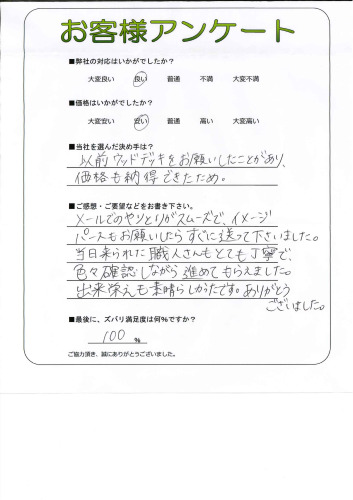 お客様アンケート
■弊社の対応はいかがでしたか？
大変良い 良い 普通 不満 大変不満
■価格はいかがでしたか？
大変安い 安い 普通 高い 大変高い
■当社を選んだ決め手は？
以前ウッドデッキをお願いしたことがあり、
価格も納得できたため。
■ご感想・ご要望などをお書き下さい。
メールでのやりとりがスムーズで、イメージ
パースもお願いしたらすぐに送って下さいました。
当日来られた職人さんもとても丁寧で、
色々確認しながら進めてもらえました。
出来栄えも素晴らしかったです。ありがとう
ございました。
■最後に、ズバリ満足度は何%ですか？
100 %
ご協力頂き、誠にありがとうございました。